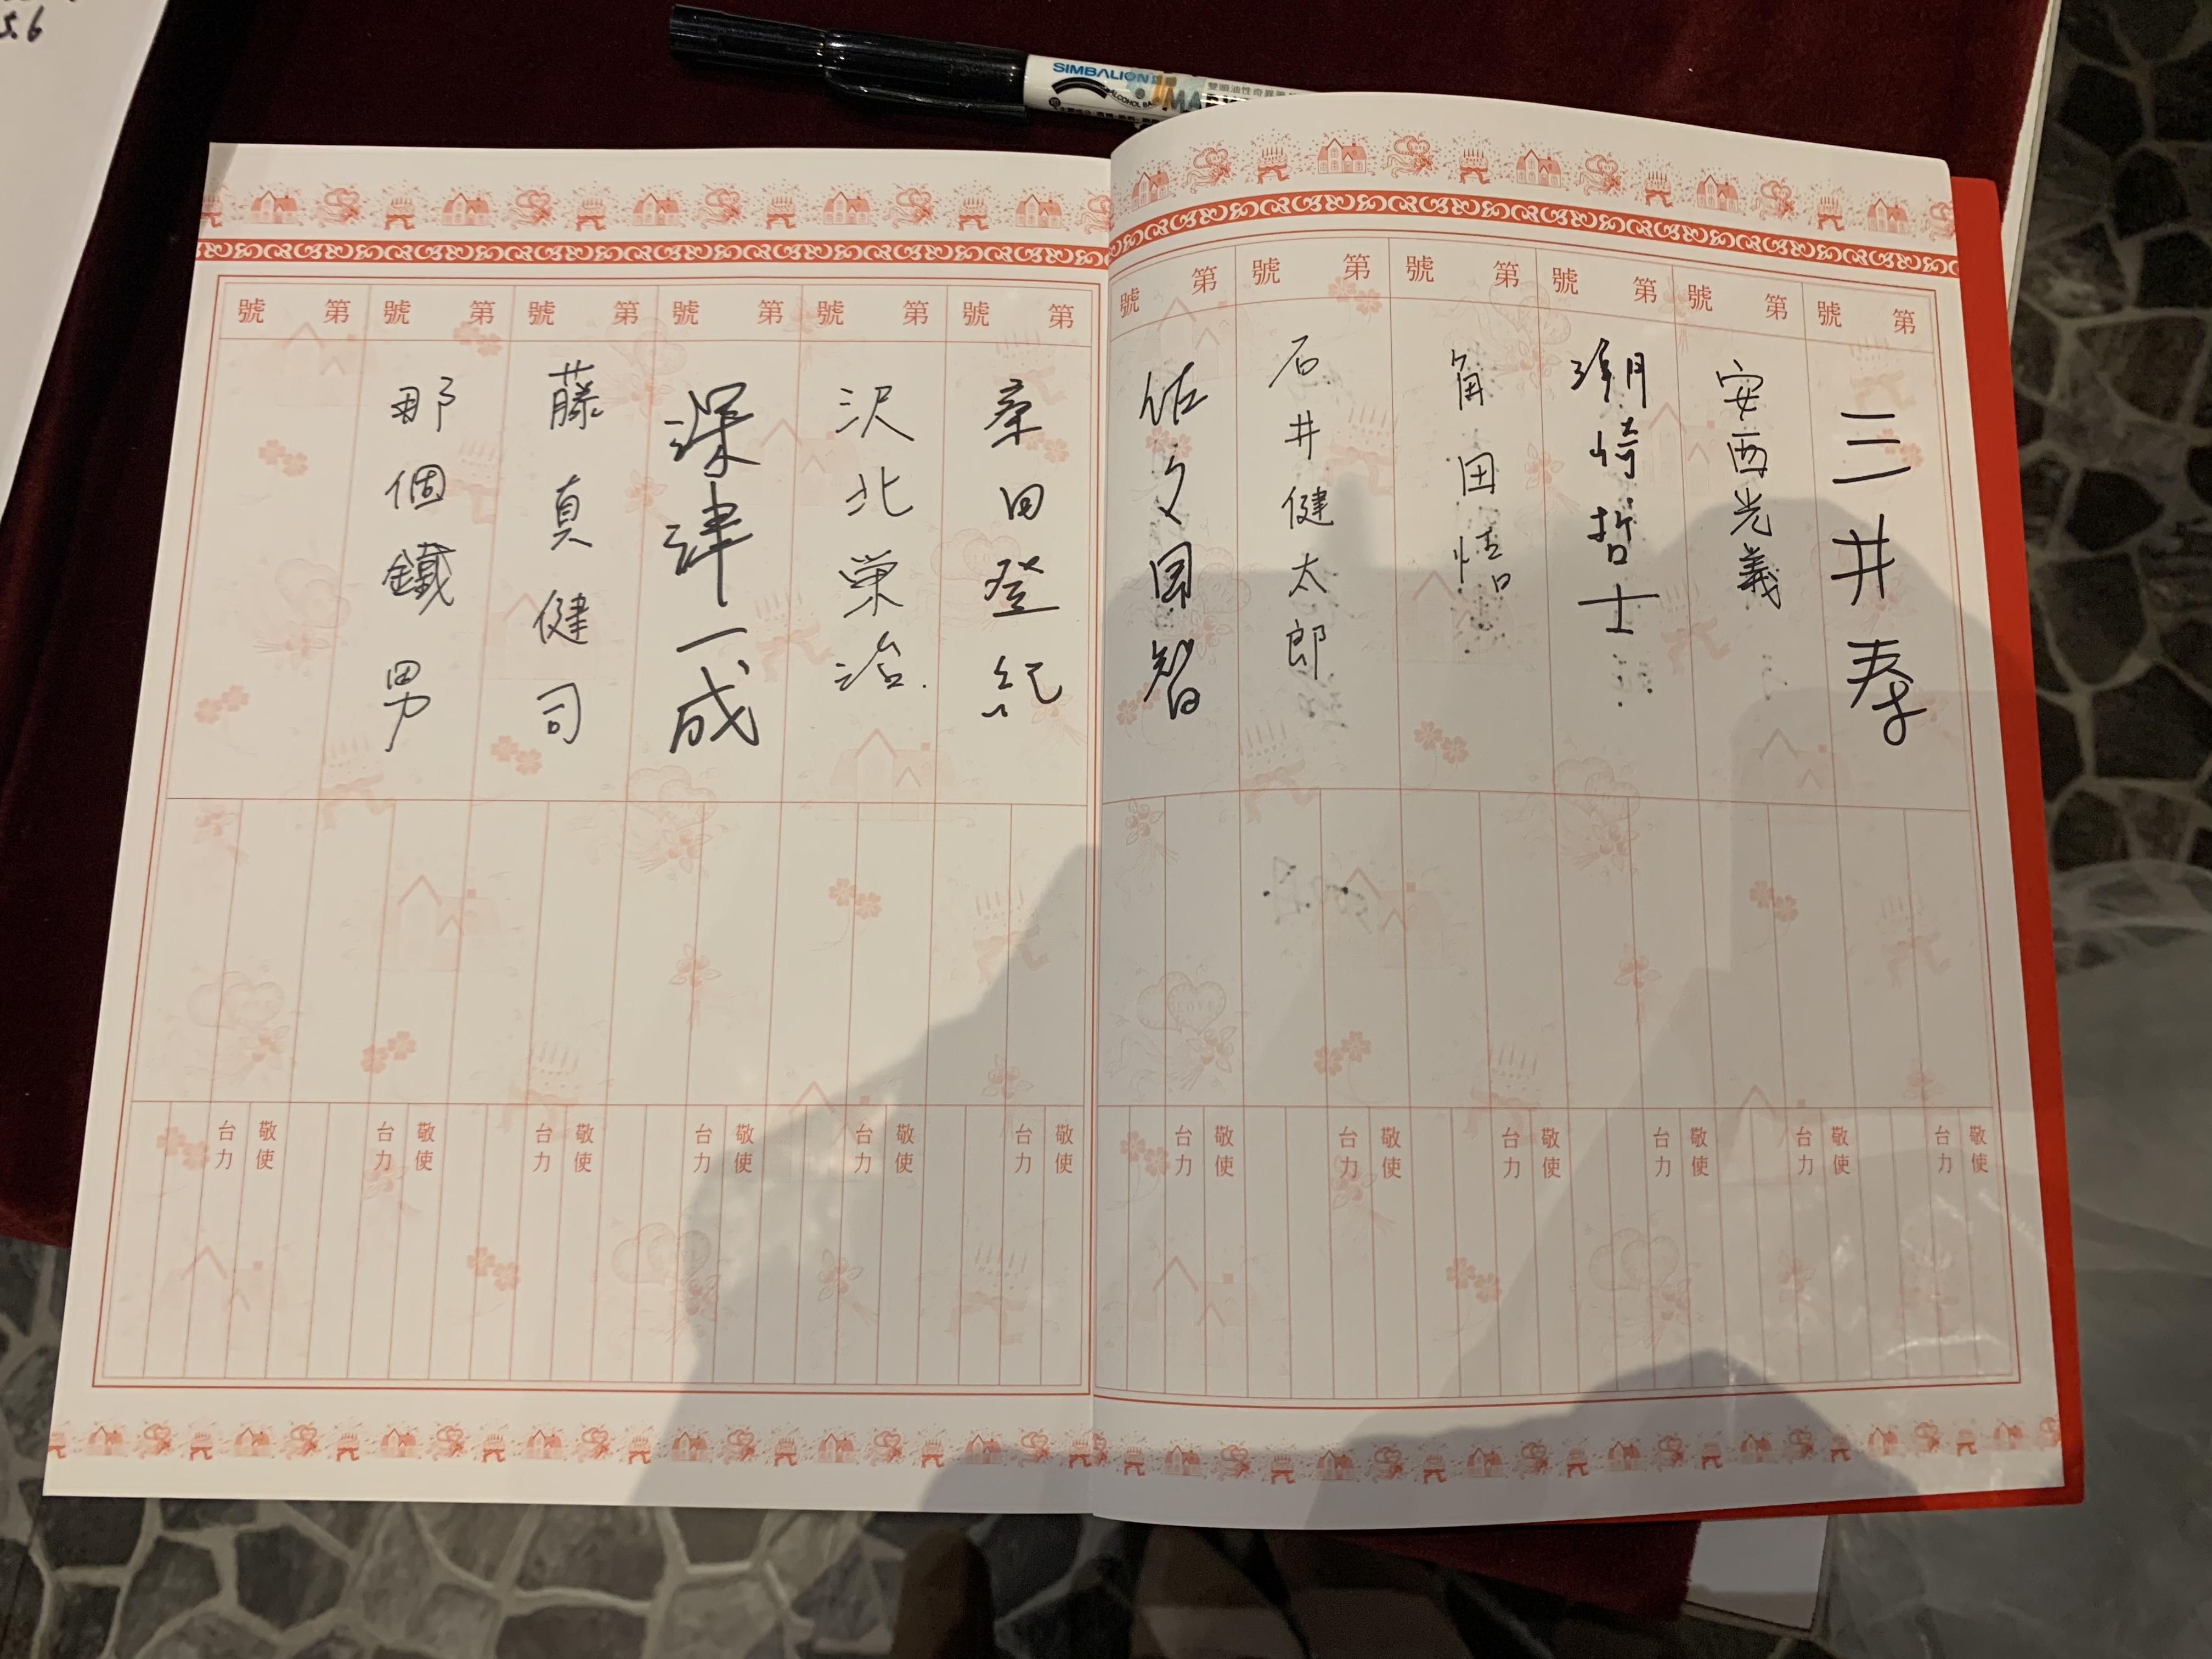 56
SIMBALION
ALCOHOL BA
MAR
雙頭油性奇異
第 號
第 號
第 號
第 號
第 號
第 號
三井寿
安西光義
潮崎哲士
角田悟
石井健太郎
佐々岡智
敬使 台力
敬使 台力
敬使 台力
敬使 台力
敬使 台力
敬使 台力
第 號
第 號
第 號
第 號
第 號
第 號
桑田登紀
沢北栄治.
深津一成
藤真健司
那個鐵男
敬使 台力
敬使 台力
敬使 台力
敬使 台力
敬使 台力
敬使 台力